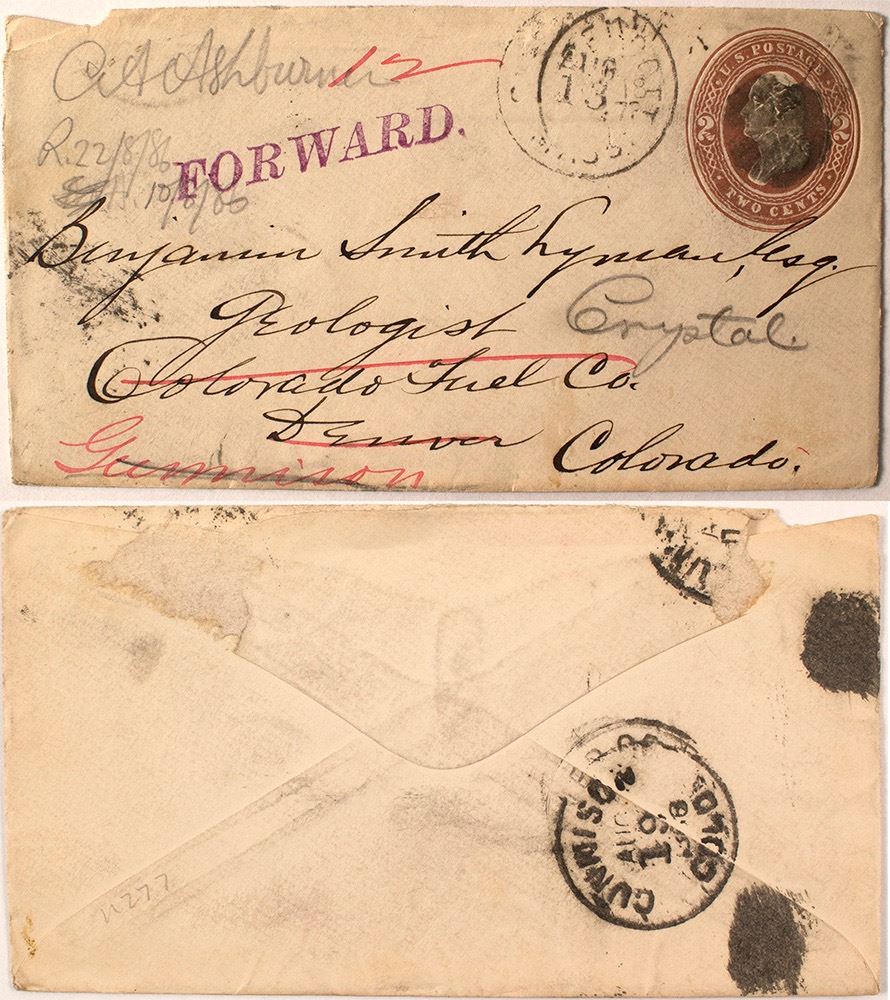 C. A. Ashburner
12
R. 22/8/86
10/8/86
FORWARD.
AUG
13
U.S. POSTAGE
2 2
TWO CENTS
Benjamin Smith Lyman, Esq.
Geologist
Crystal.
Colorado Fuel Co.
Denver
Colorado.
Gunnison
GUNNISON
COLO
AUG
19
n277